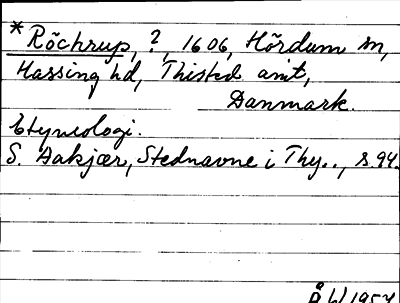 * Röchrup, ?, 1606, Hördum sn,
Hassing hd, Thisted amt,
Danmark.
Etymologi.
S. Aakjær, Stednavne i Thy.., s.94.
ÅW 1957